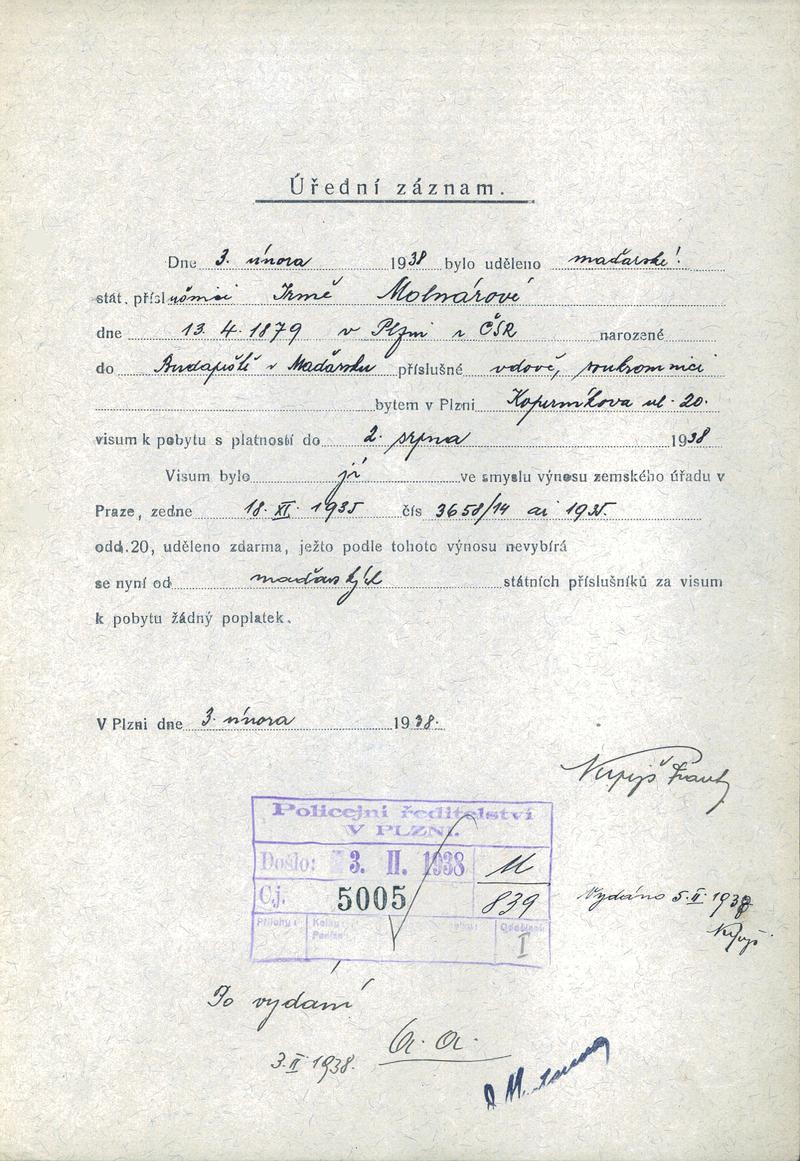 Úřední záznam.
Dne 3. února 1938 bylo uděleno maďarské
stát. přísl ušnici Irmě Molnárové
dne 13. 4. 1879 v Plzni v ČSR narozené
do Budapeště v Maďarsku příslušné vdově, soukromnici
bytem v Plzni Koperníkova ul. 20.
visum k pobytu s platností do 2. srpna 1938
Visum bylo jí ve smyslu výnosu zemského úřadu v
Praze, zedne 18. XI. 1935 čís 3658/14 ai 1935.
odd.20, uděleno zdarma, ježto podle tohoto výnosu nevybírá
se nyní od maďarských státních příslušníků za visum
k pobytu žádný poplatek.
V Plzni dne 3. února 1938.
Policejní ředitelství
V PLZNI.
Došlo: 3. II. 1938 M
Čj. 5005 839
Přílohy: Kolky: Oddělení:
I
Vydáno 5. II. 1938
Po vydání
a. a.
3. II. 1938.